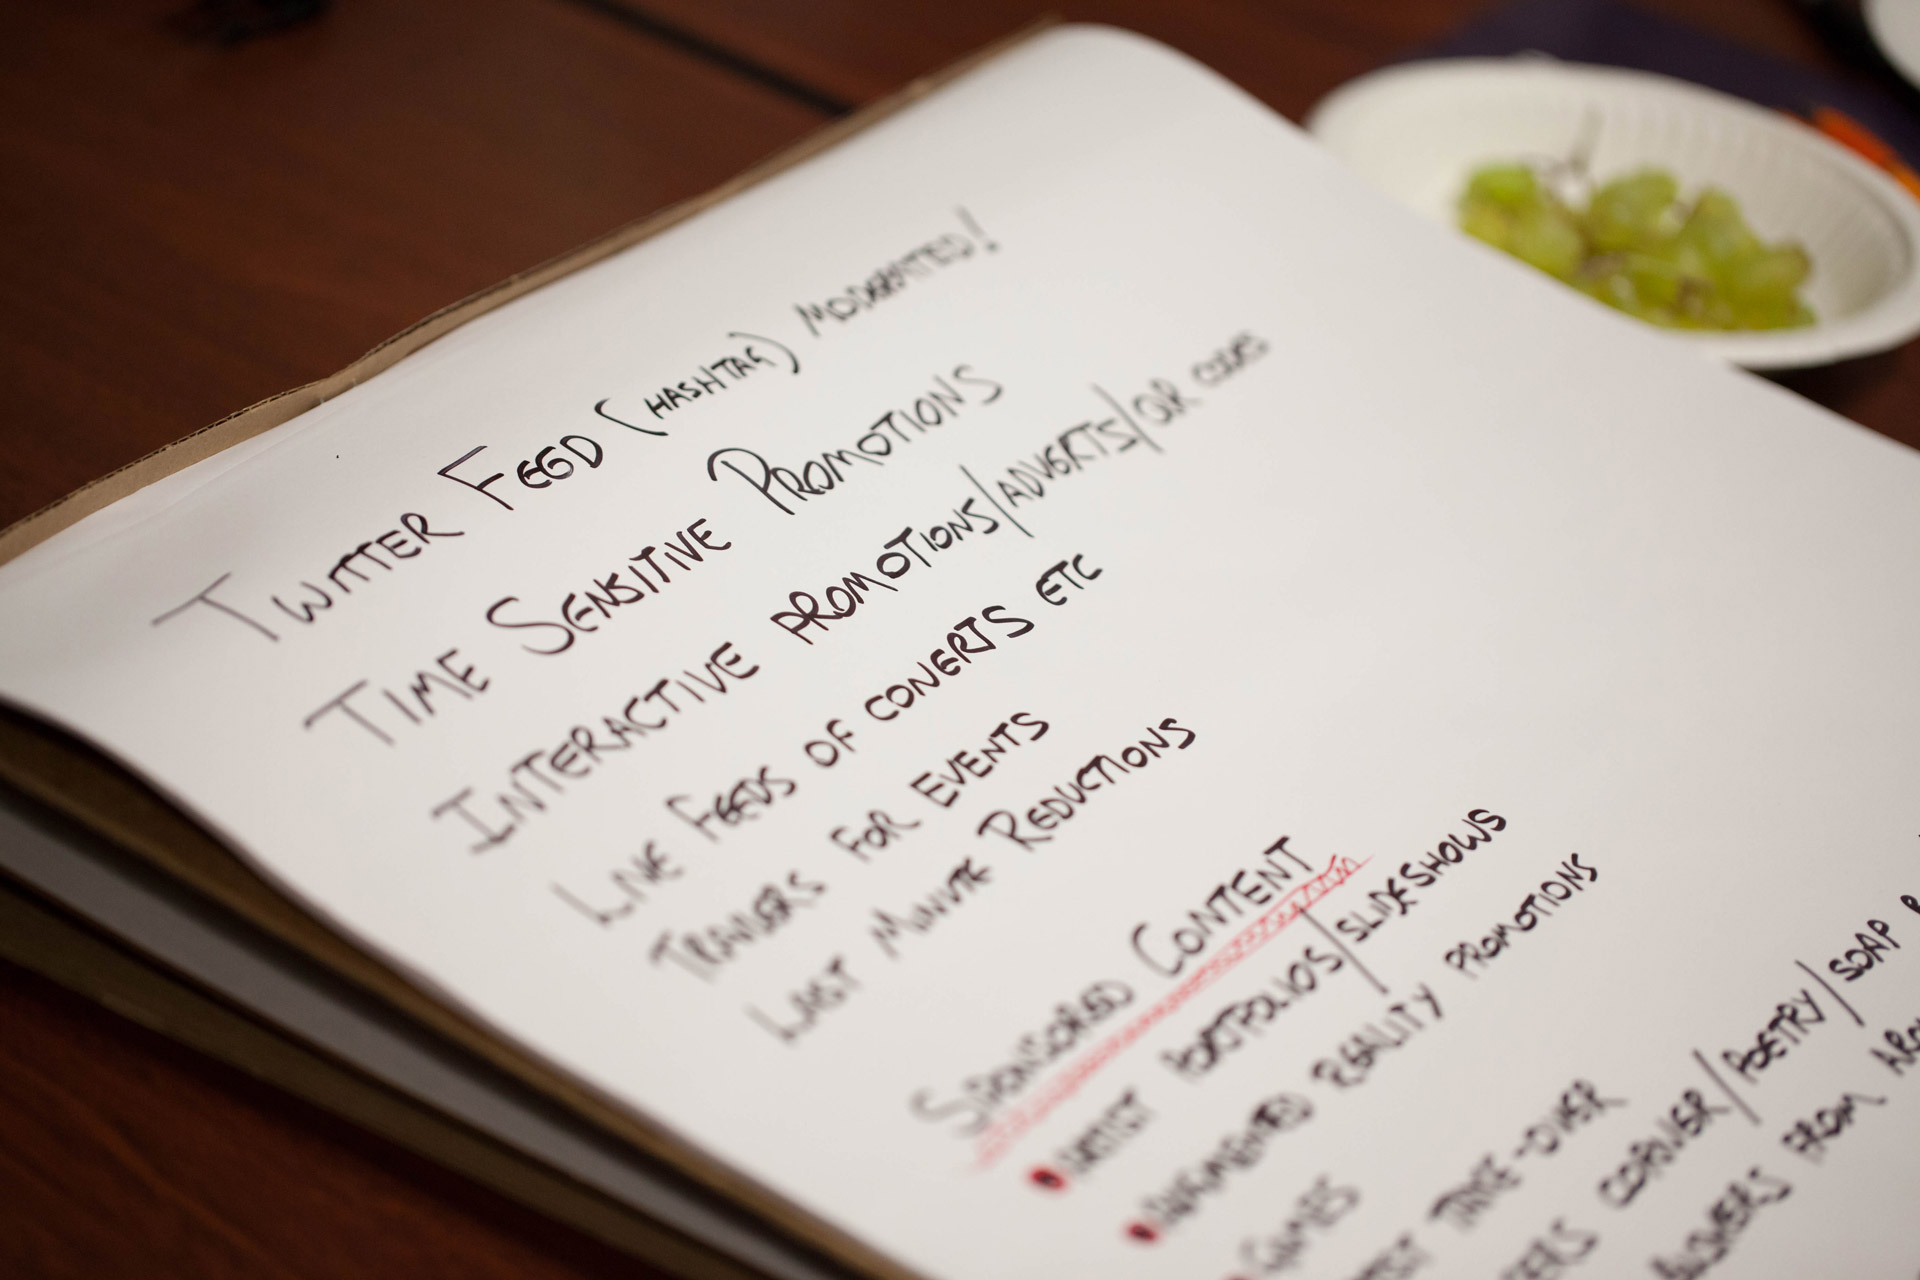 TWITTER FEED (HASHTAG) MODERATED!
TIME SENSITIVE PROMOTIONS
INTERACTIVE PROMOTIONS/ADVERTS/QR CODES
LIVE FEEDS OF CONERTS ETC
TRAILERS FOR EVENTS
LAST MINUTE REDUCTIONS
SPONSORED CONTENT
ARTIST PORTFOLIOS/SLIDESHOWS
AUGMENTED REALITY PROMOTIONS
GAMES
TAKE-OVER
CORNER/POETRY/SOAP
ANSWERS FROM